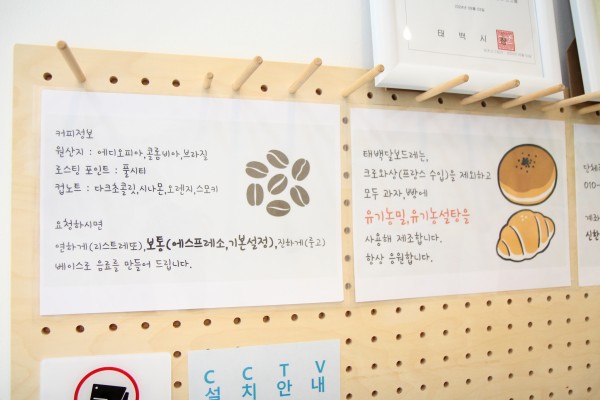 태 백 시
커피정보
원산지 : 에디오피아,콜롬비아,브라질
로스팅 포인트 : 풀시티
컵노트 : 다크초콜릿,시나몬,오렌지,스모키
요청하시면
연하게(리스트레또),보통(에스프레소,기본설정),진하게(룽고)
베이스로 음료를 만들어 드립니다.
태백달보드레는,
크로와상(프랑스 수입)을 제외하고
모두 과자,빵에
유기농밀,유기농설탕을
사용해 제조합니다.
항상 응원합니다.
010-
CCTV
설치안내